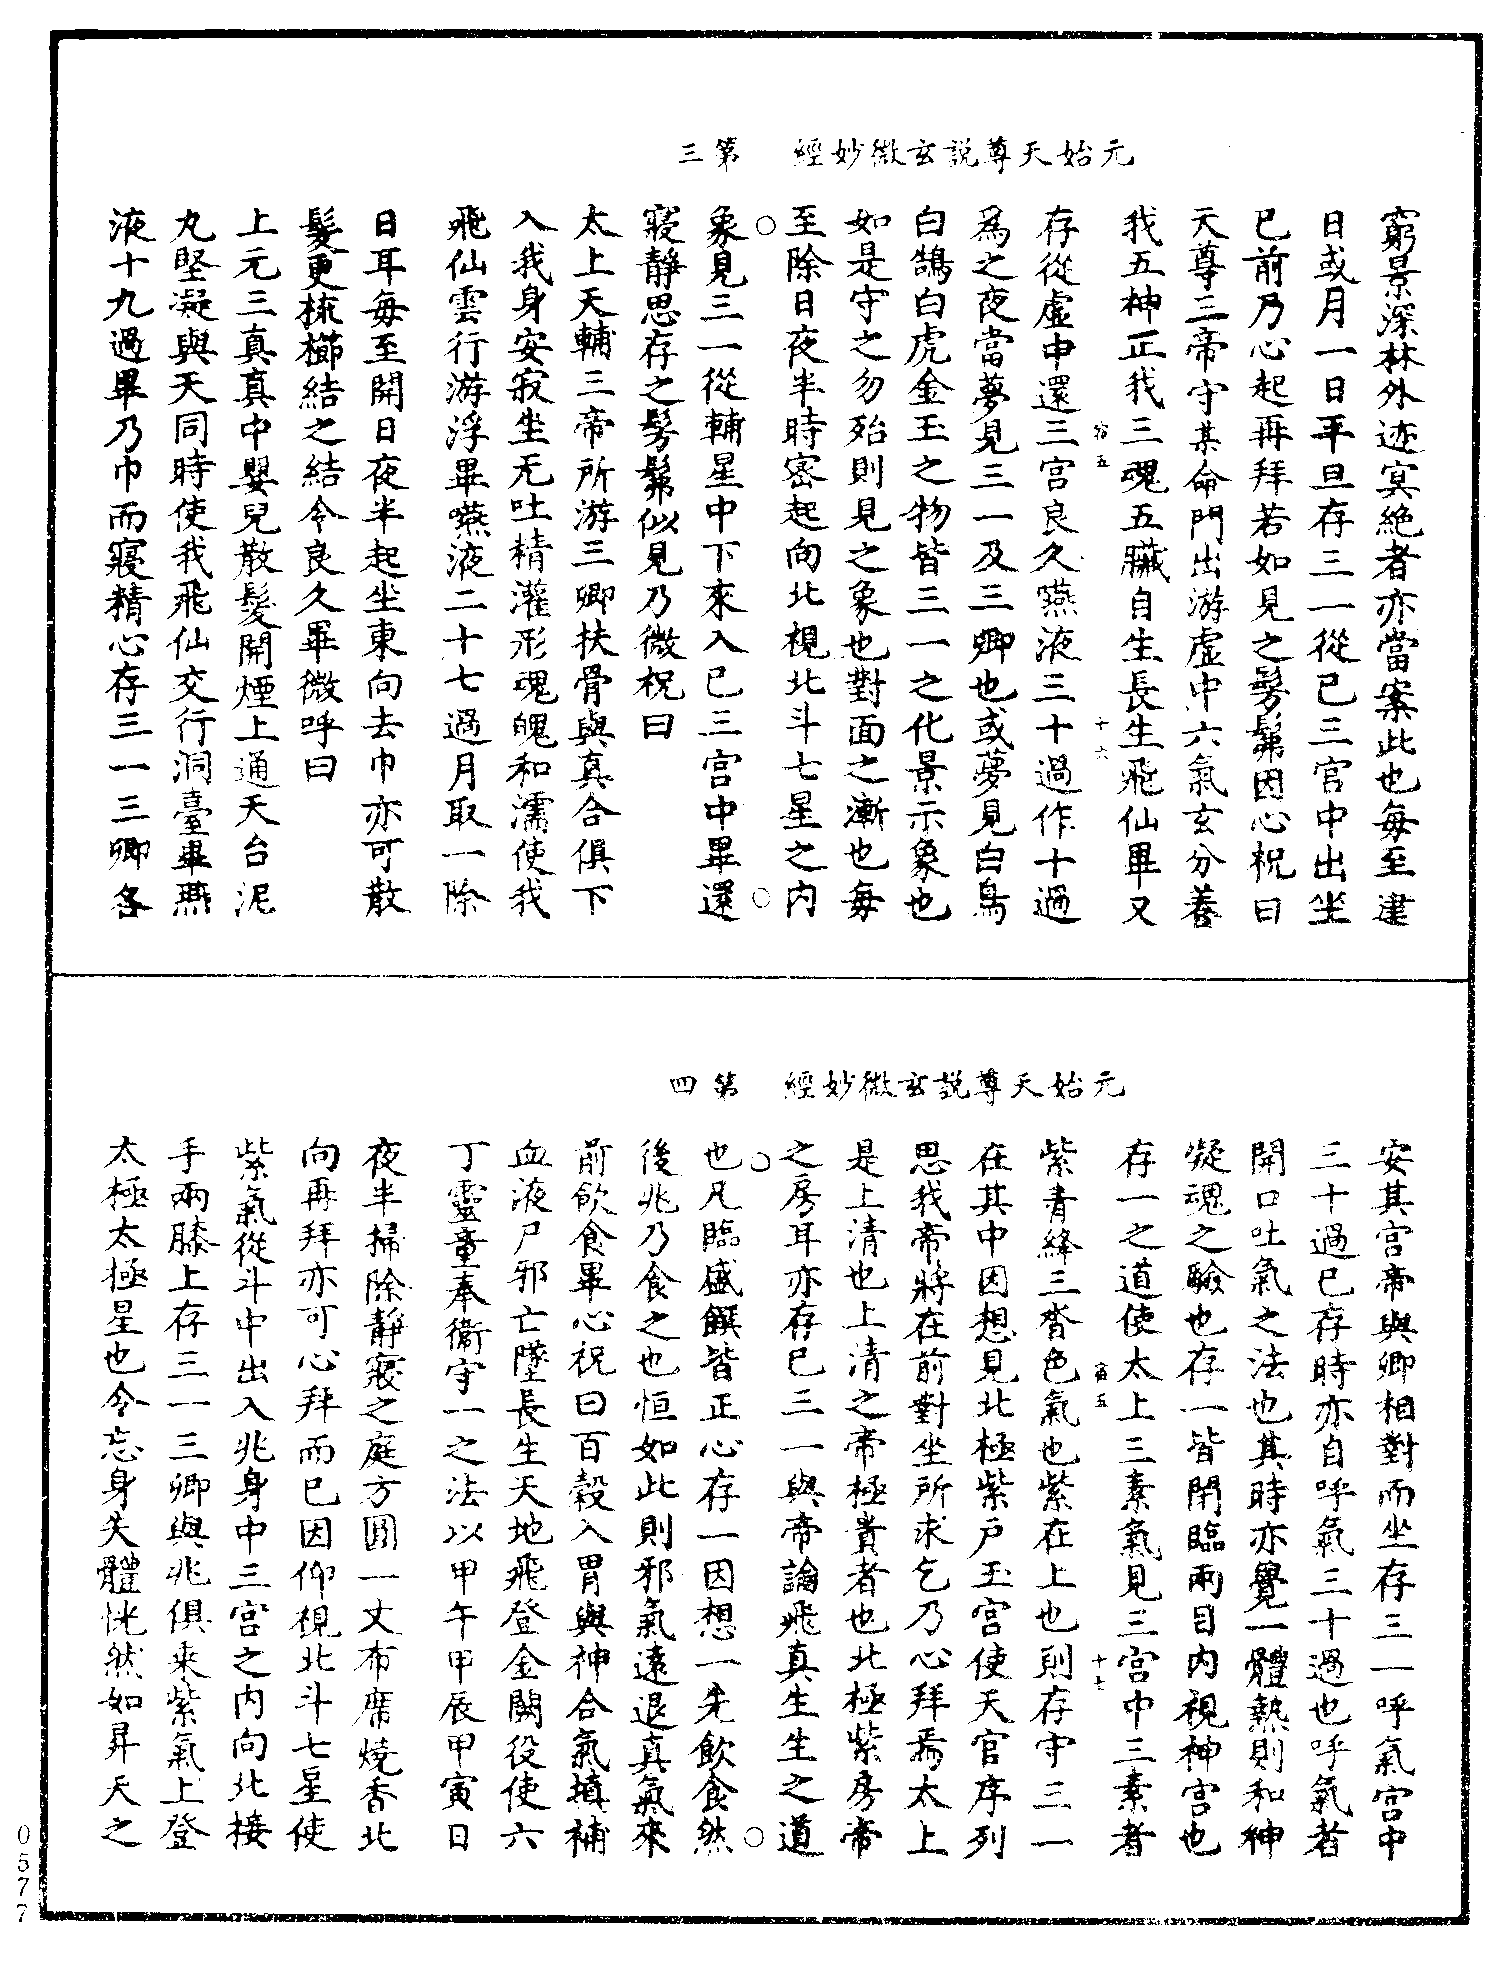 元始天尊說玄微妙經　第三
窮景深林外迹冥絶者亦當案此也每至建
日或月一日平旦存三一從已三官中出坐
已前乃心起再拜若如見之髣髴因心祝曰
天尊三帝守某命門出游虛中六氣玄分養
我五神正我三魂五臟自生長生飛仙畢又
存從虛中還三宮良久嚥液三十過作十過
爲之夜當夢見三一及三卿也或夢見白鳥
白鵠白虎金玉之物皆三一之化景示象也
如是守之勿殆則見之象也對面之漸也每
至除日夜半時密起向北視北斗七星之內
象見三一從輔星中下來入已三宮中畢還
寢靜思存之髣髴似見乃微祝曰
太上天輔三帝所游三卿扶骨與真合俱下
入我身安寂坐无吐精灌形魂魄和濡使我
飛仙雲行游浮畢嚥液二十七過月取一除
日耳每至開日夜半起坐東向去巾亦可散
髮更梳櫛結之結令良久畢微呼曰
上元三真真中嬰兒散髮開煙上通天台泥
丸堅凝與天同時使我飛仙交行洞臺畢嚥
液十九過畢乃巾而寢精心存三一三卿各
元始天尊說玄微妙經　第四
安其宮帝與卿相對而坐存三一呼氣宮中
三十過已存時亦自呼氣三十過也呼氣者
開口吐氣之法也其時亦覺一體熱則和神
凝魂之驗也存一皆閉臨兩目內視神宮也
存一之道使太上三素氣見三宮中三素者
紫青絳三沓色氣也紫在上也則存守三一
在其中因想見北極紫户玉宮使天官序列
思我帝將在前對坐所求乞乃心拜焉太上
是上清也上清之帝極貴者也北極紫房帝
之房耳亦存已三一與帝論飛真生生之道
也凡臨盛饌皆正心存一因想一先飲食然
後兆乃食之也恒如此則邪氣遠退真氣來
前飲食畢心祝曰百穀入胃與神合氣填補
血液尸邪亡墜長生天地飛登金闕役使六
丁靈童奉衞守一之法以甲午甲辰甲寅日
夜半掃除靜寢之庭方圓一丈布席燒香北
向再拜亦可心拜而已因仰視北斗七星使
紫氣從斗中出入兆身中三宮之內向北接
手兩膝上存三一三卿與兆俱乘紫氣上登
太極太極星也令忘身失體恍然如昇天之
0577